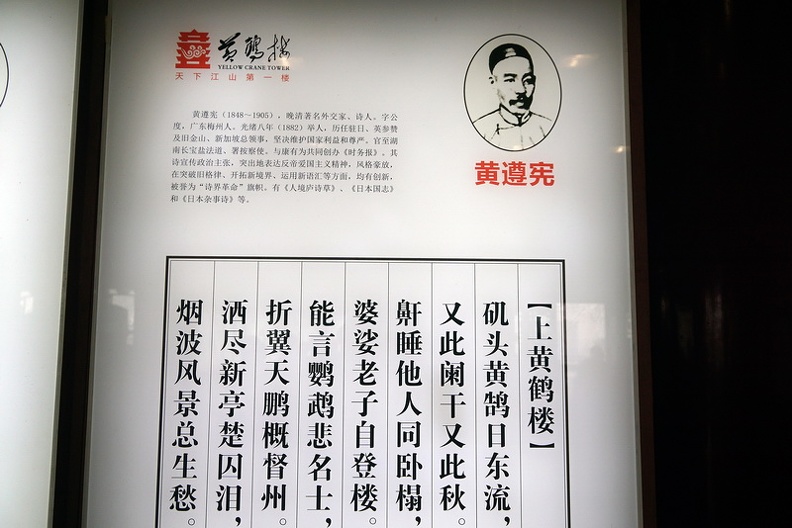 黄鹤楼
YELLOW CRANE TOWER
天下江山第一楼
黄遵宪（1848～1905），晚清著名外交家、诗人。字公
度，广东梅州人。光绪八年（1882）举人，历任驻日、英参赞
及旧金山、新加坡总领事，坚决维护国家利益和尊严。官至湖
南长宝盐法道、署按察使。与康有为共同创办《时务报》。其
诗宣传政治主张，突出地表达反帝爱国主义精神，风格豪放，
在突破旧格律、开拓新境界、运用新语汇等方面，均有创新，
被誉为“诗界革命”旗帜。有《人境庐诗草》、《日本国志》
和《日本杂事诗》等。
黄遵宪
【上黄鹤楼】
矶头黄鹄日东流，
又此阑干又此秋。
鼾睡他人同卧榻，
婆娑老子自登楼。
能言鹦鹉悲名士，
折翼天鹏概督州。
洒尽新亭楚囚泪，
烟波风景总生愁。